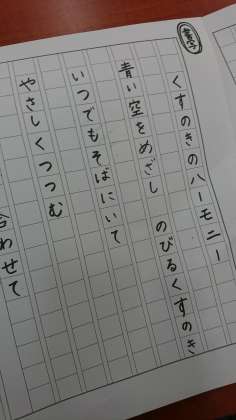 くすのきのハーモニー
青い空をめざし　のびるくすのき
いつでもそばにいて
やさしくつつむ
合わせて